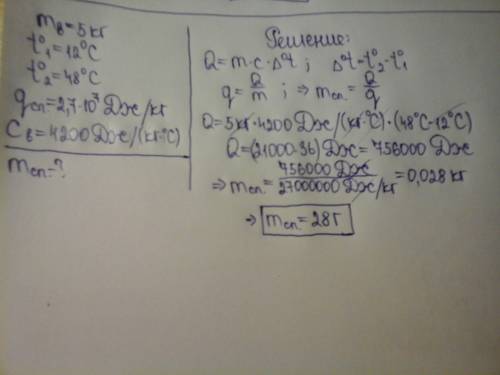 mв=5кг
t°1=12°C
t°2=48°C
qсп=2,7·10⁷ Дж/кг
Cв=4200 Дж/(кг·°C)
mсп=?
Решение:
Q=m·c·Δt°; Δt°=t°2-t°1
q=Q/m; ⇒ mсп.=Q/q
Q=5кг·4200Дж/(кг·°C)·(48°C-12°C)
Q=(21000·36)Дж=756000Дж
⇒ mсп.=756000 Дж/27000000 Дж/кг=0,028кг
⇒ mсп.=28г